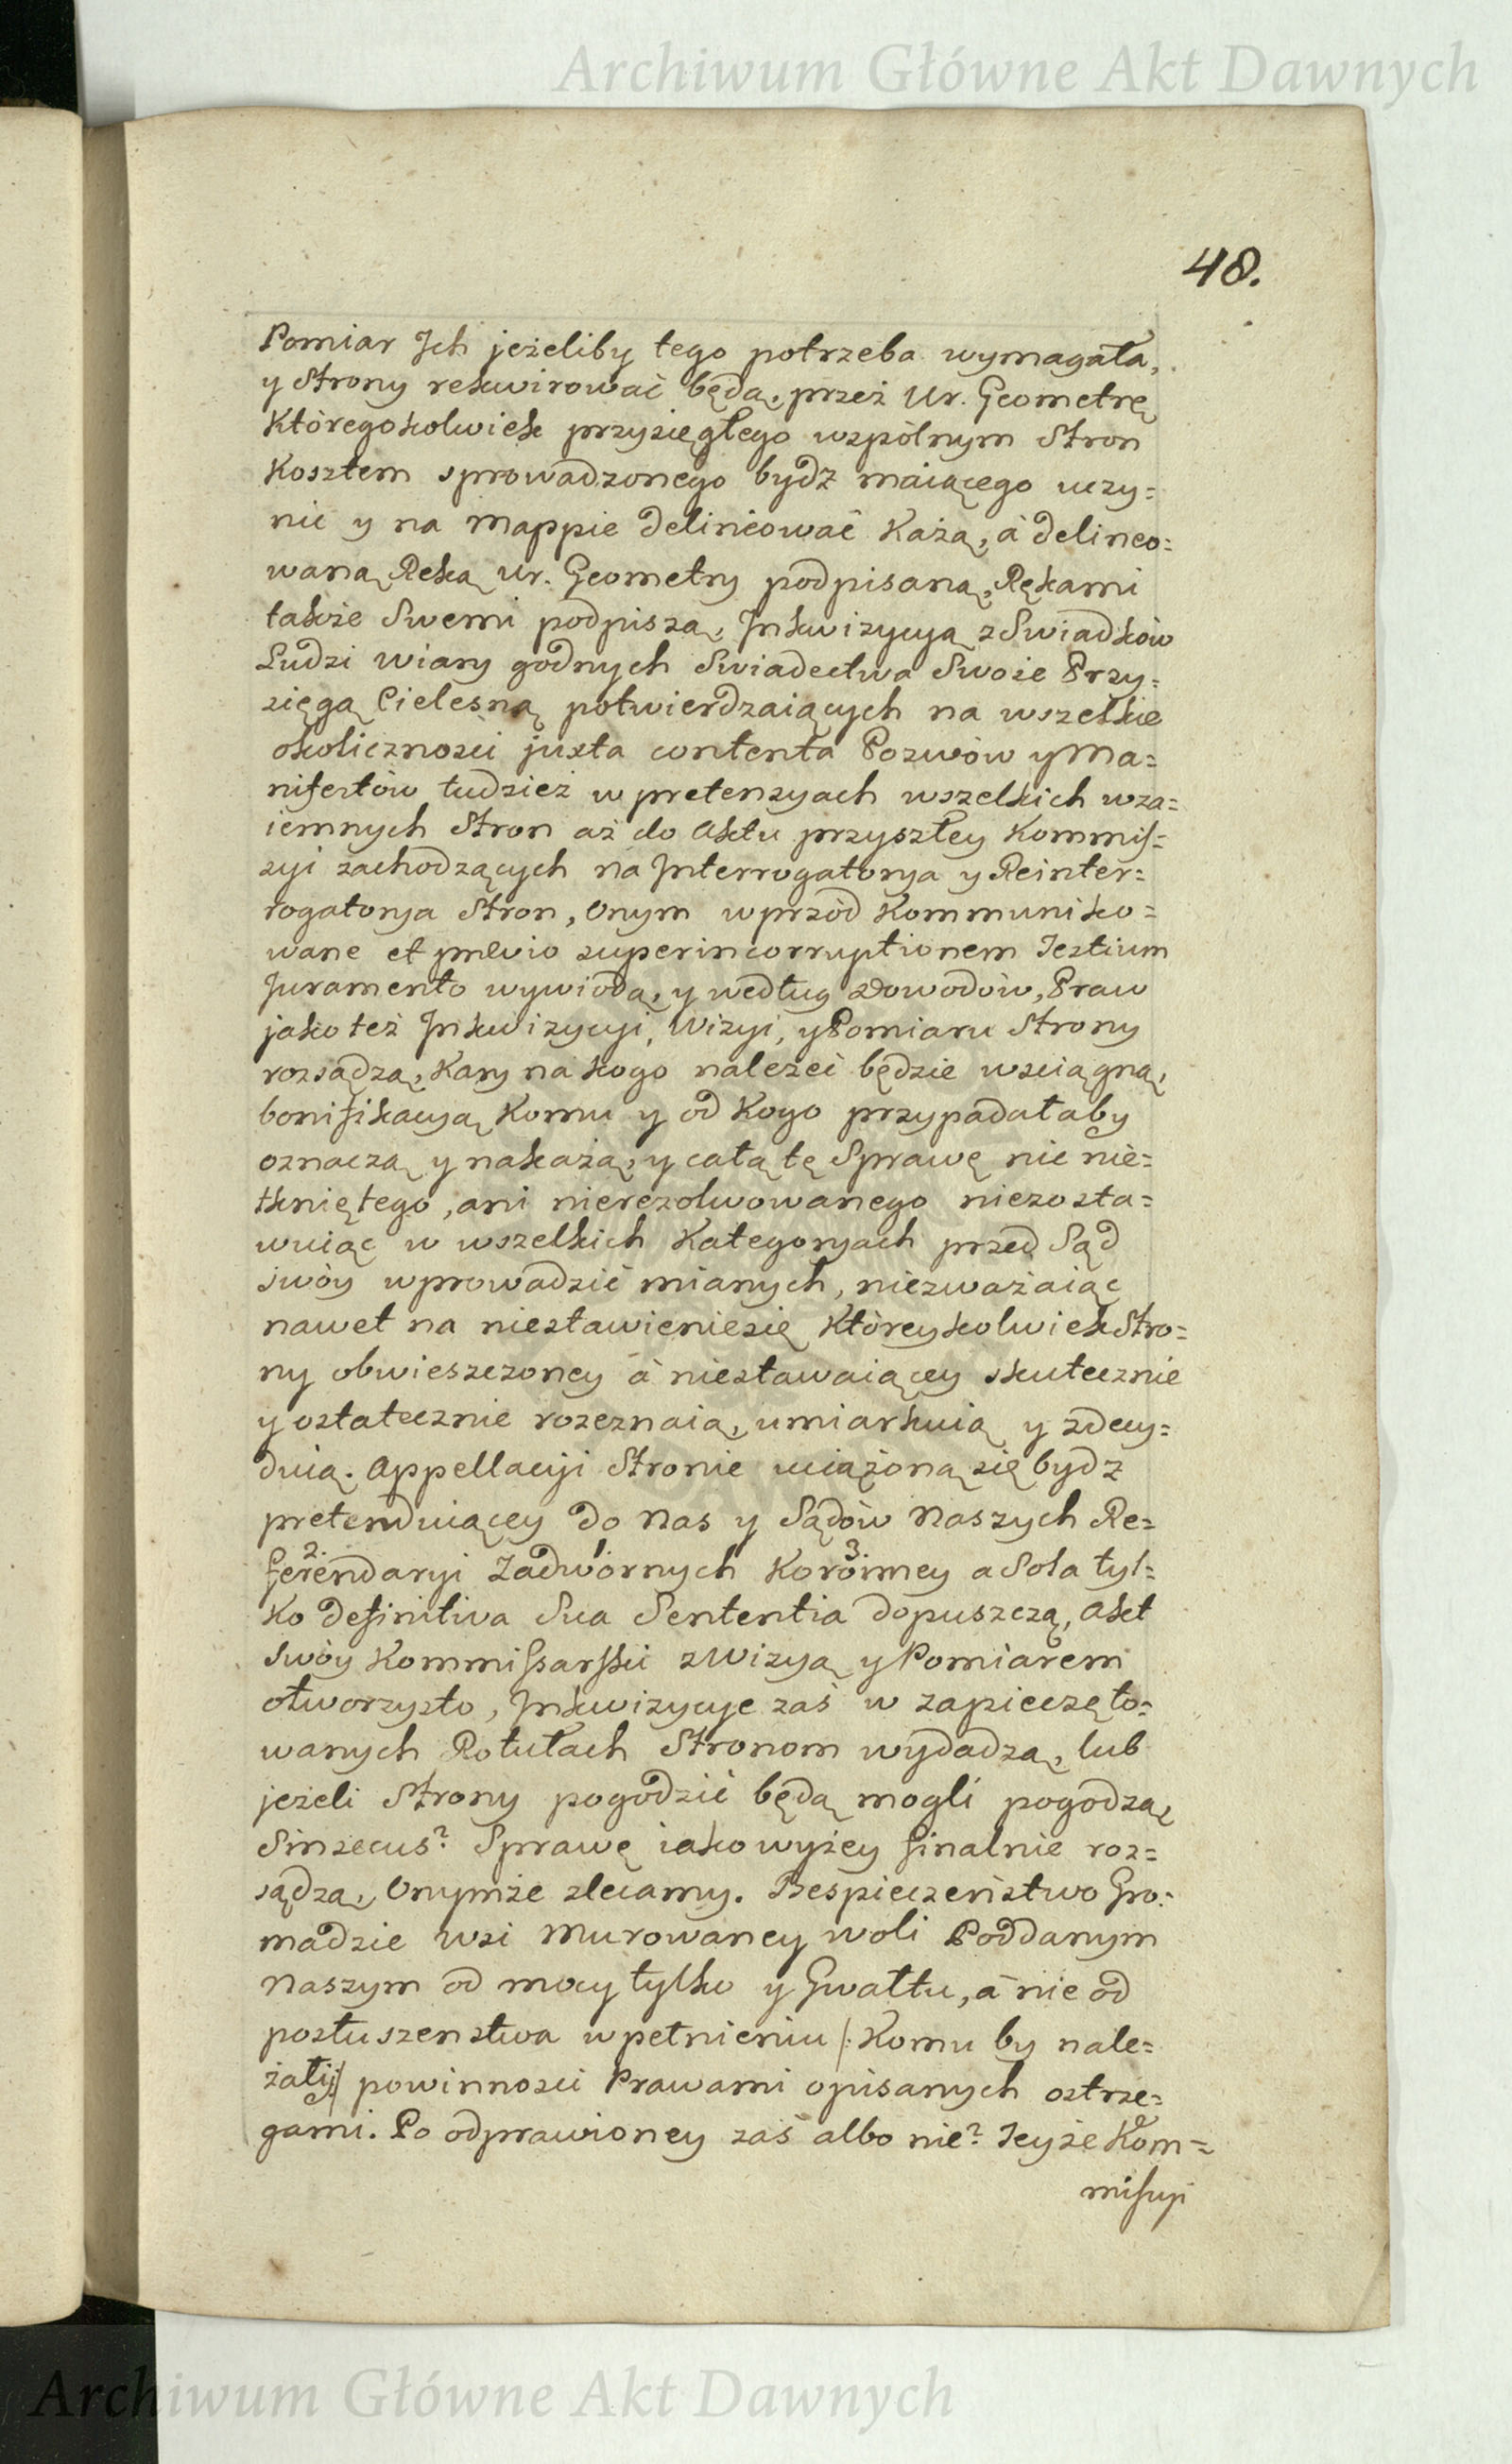 Archiwum Główne Akt Dawnych
48.
Pomiar Jch jeżeliby tego potrzeba wymagała,
y Strony rekwirować będą, przez Ur. Geometrę
Któregokolwiek przysięgłego wspólnym Stron
Kosztem sprowadzonego bydź maiącego uczy=
nić y na Mappie delineować Każą, à delineo=
waną Ręką Ur. Geometry podpisaną, Rękami
także Swemi podpiszą, Jnkwizycyą z Swiadków
Ludzi wiary godnych Swiadectwa Swoie Przy=
sięgą Cielesną potwierdzaiących na wszelkie
okoliczności juxta contenta Pozwów y Ma=
nifestów tudzież w pretensyach wszelkich wza=
iemnych Stron aż do Aktu przyszłey Kommis=
syi zachodzących na Jnterrogatorya y Reinter=
rogatorya Stron, Onym wprzód Kommuniko=
wane et prævio super incorruptionem Testium
Juramento wywiodą, y według Dowodów, Praw
jako też Jnkwizycyi, Wizyi, y Pomiaru Strony
rozsądzą, Kary na kogo należeć będzie wsciągną,
bonifikacyą Komu y od Kogo przypadałaby
oznaczą y nakażą, y całą tę Sprawę nic nie=
tkniętego, ani nierezolwowanego niezosta=
wuiąc w wszelkich Kategoryach przed Sąd
swóy wprowadzić mianych, niezważaiąc
nawet na niestawieniesię Któreykolwiek Stro=
ny obwieszczoney à niestawaiącey skutecznie
y ostatecznie rozeznaią, umiarkuią y zdecy=
duią. Appellacyi Stronie uciążoną się bydz
pretenduiącey do Nas y Sądów Naszych Re=
2. 1 3.
ferendaryi Zadwornych Koronney a Sola tyl=
ko definitiva Sua Sententia dopuszczą, Akt
Swóy Kommissarski z Wizyą y Pomiarem
otworzysto, Jnkwizycye zaś w zapieczęto=
wanych Rotułach Stronom wydadzą, lub
jeżeli Strony pogodzić będą mogli pogodzą,
Sinsecus? Sprawę iako wyżey finalnie roz=
sądzą, Onymże zlecamy. Bespieczeństwo Gro=
madzie wsi Murowaney woli Poddanym
Naszym od mocy tylko y Gwałtu, à nie od
posłuszenstwa w pełnieniu /: Komu by nale=
żały :/ powinnosci Prawami opisanych ostrze=
gami. Po odprawioney zaś albo nie? Teyże Kom=
missyi
Archiwum Główne Akt Dawnych